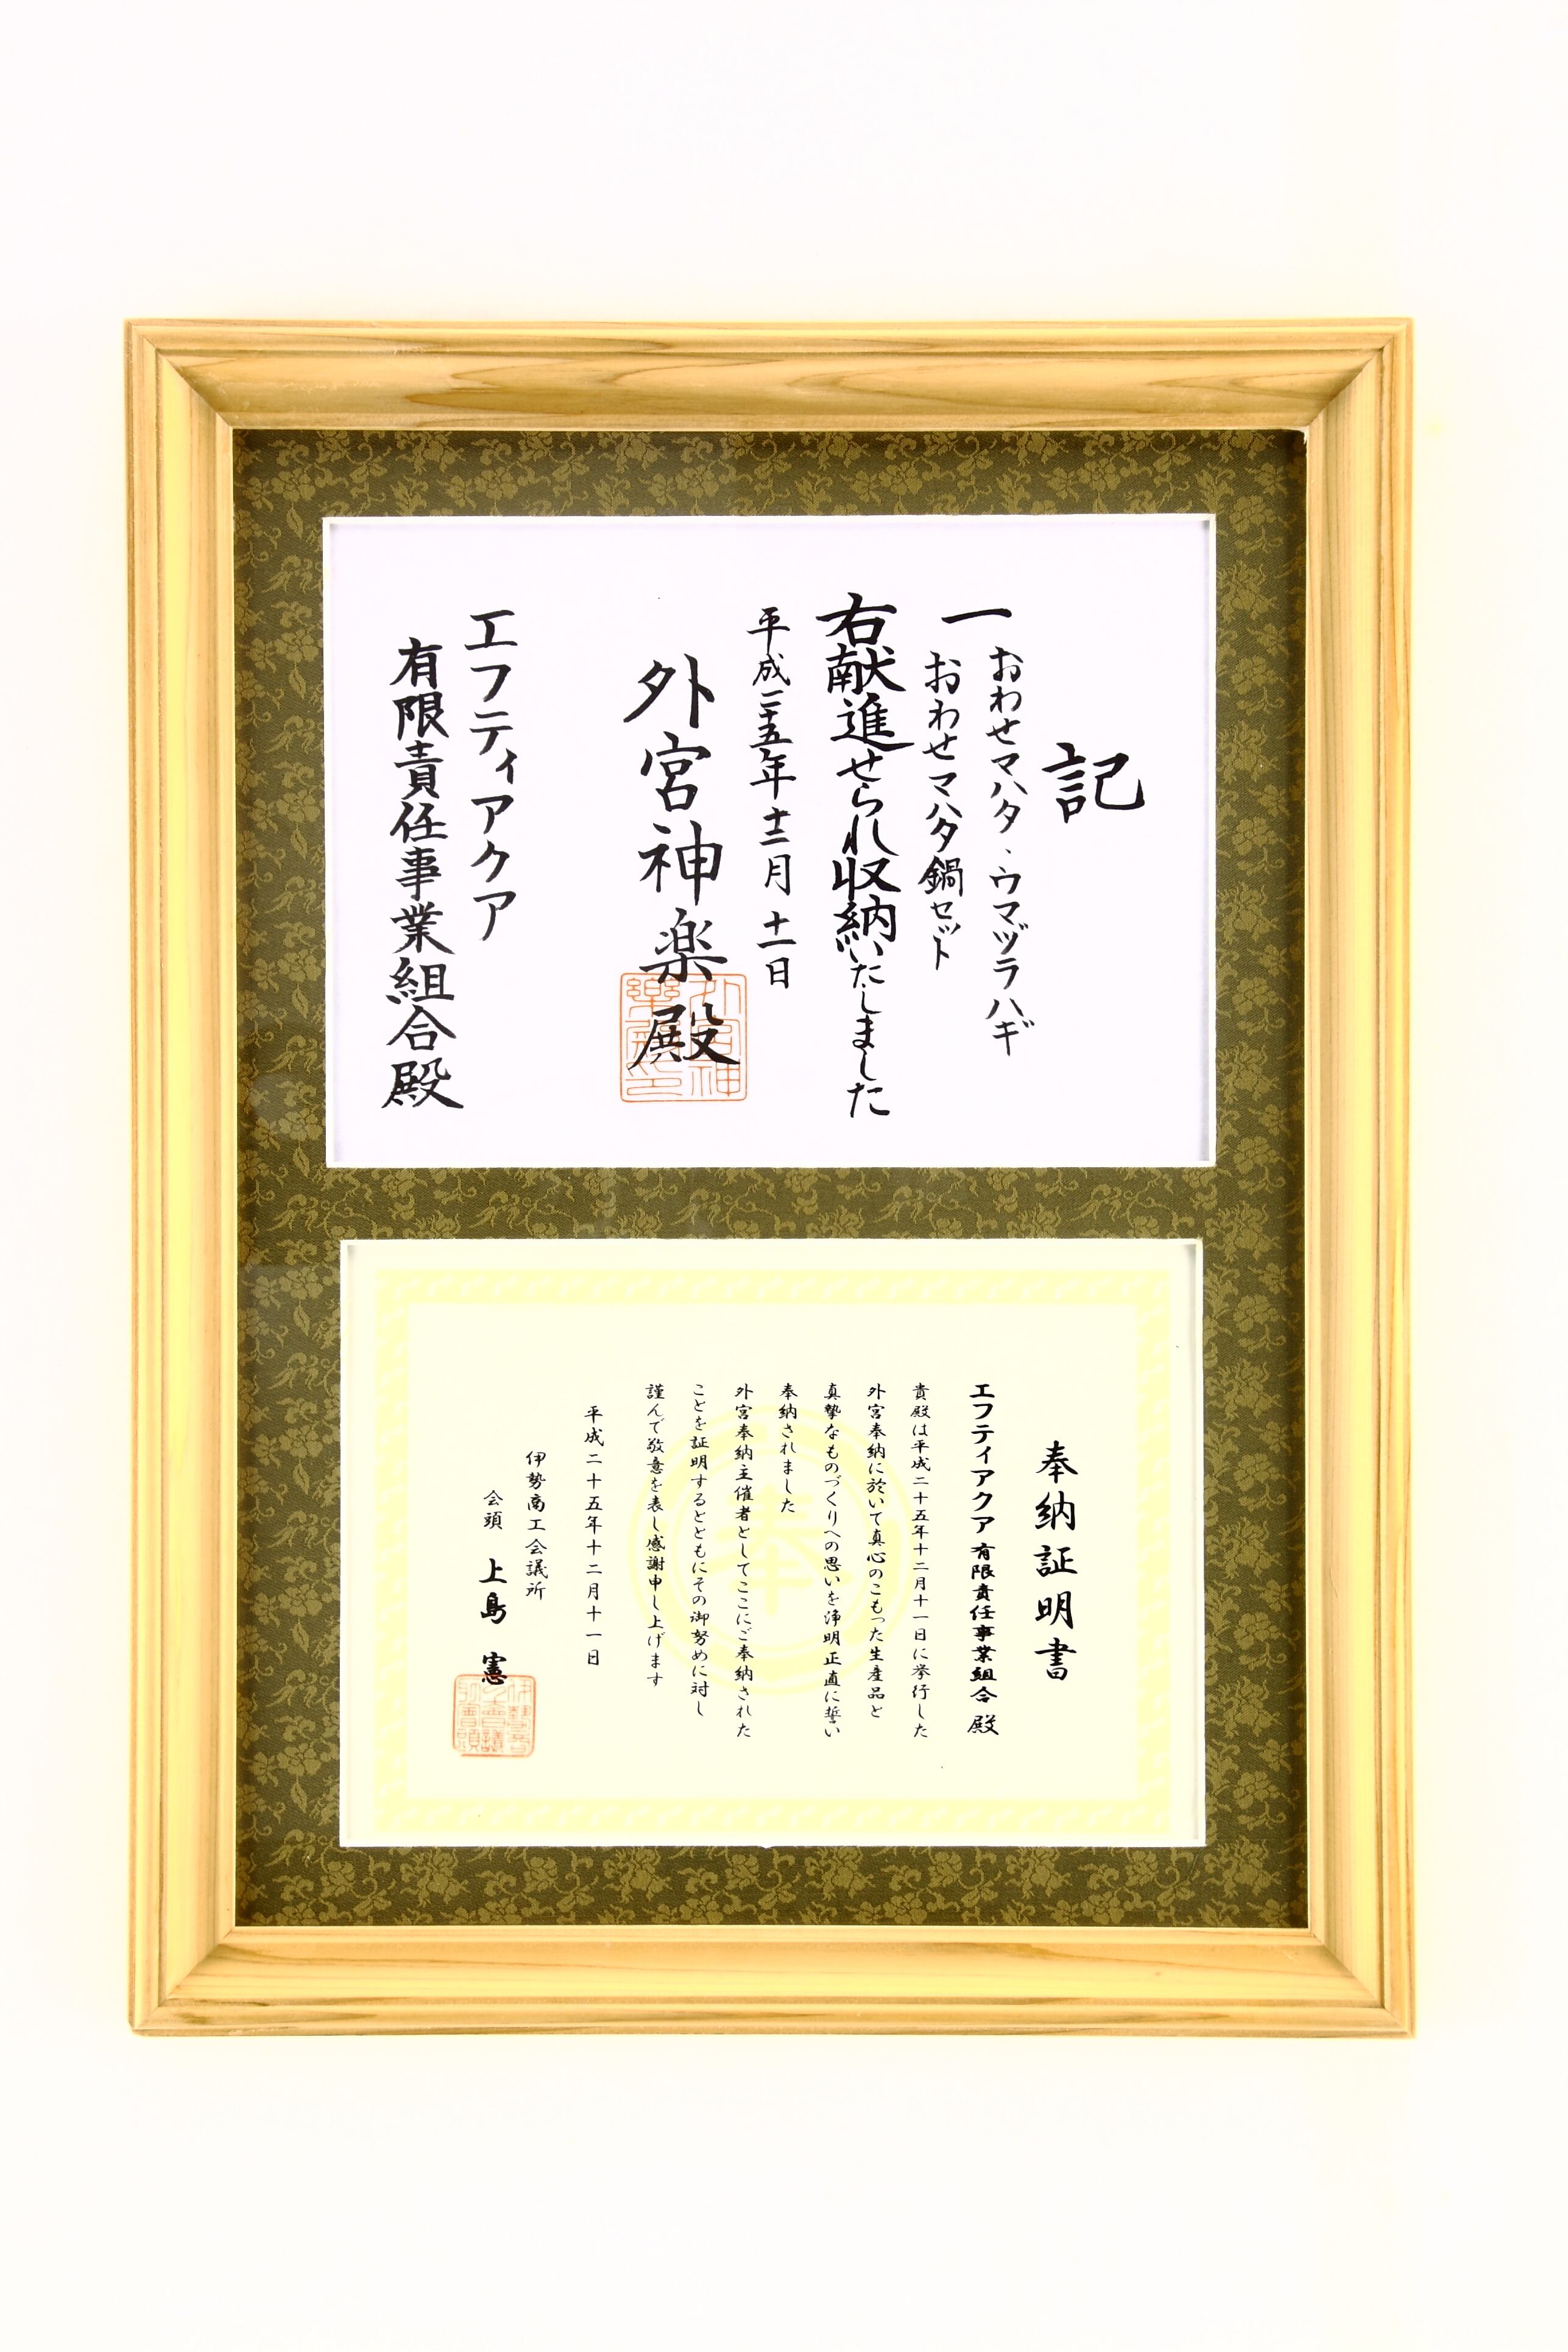 記
一
おわせマハタ、ウマヅラハギ
おわせマハタ鍋セット
右献進せられ収納いたしました
平成二十五年十二月十一日
外宮神楽殿
エフティアクア
有限責任事業組合殿
奉納証明書
エフティアクア有限責任事業組合 殿
貴殿は平成二十五年十二月十一日に挙行した
外宮奉納に於いて真心のこもった生産品と
真摯なものづくりへの思いを浄明正直に誓い
奉納されました
外宮奉納主催者としてここにご奉納された
ことを証明するとともにその御努めに対し
謹んで敬意を表し感謝申し上げます
平成二十五年十二月十一日
伊勢商工会議所
会頭 上島 憲
奉